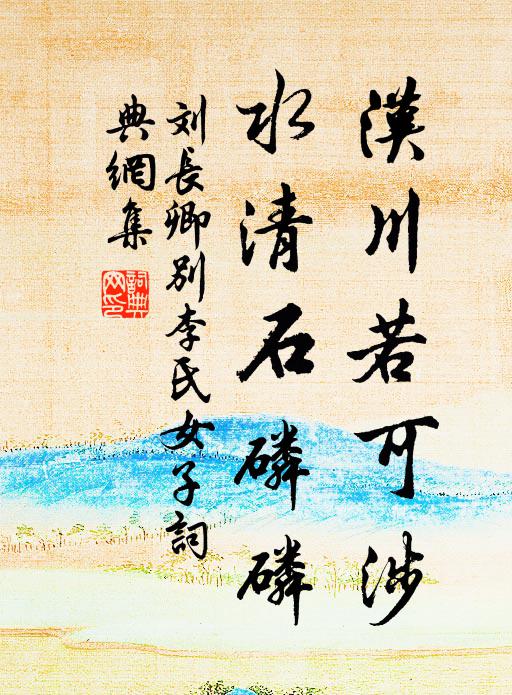 漢川若可涉
水清石磷磷
刘長卿別李氏女子詞
典網集
詞典
网印